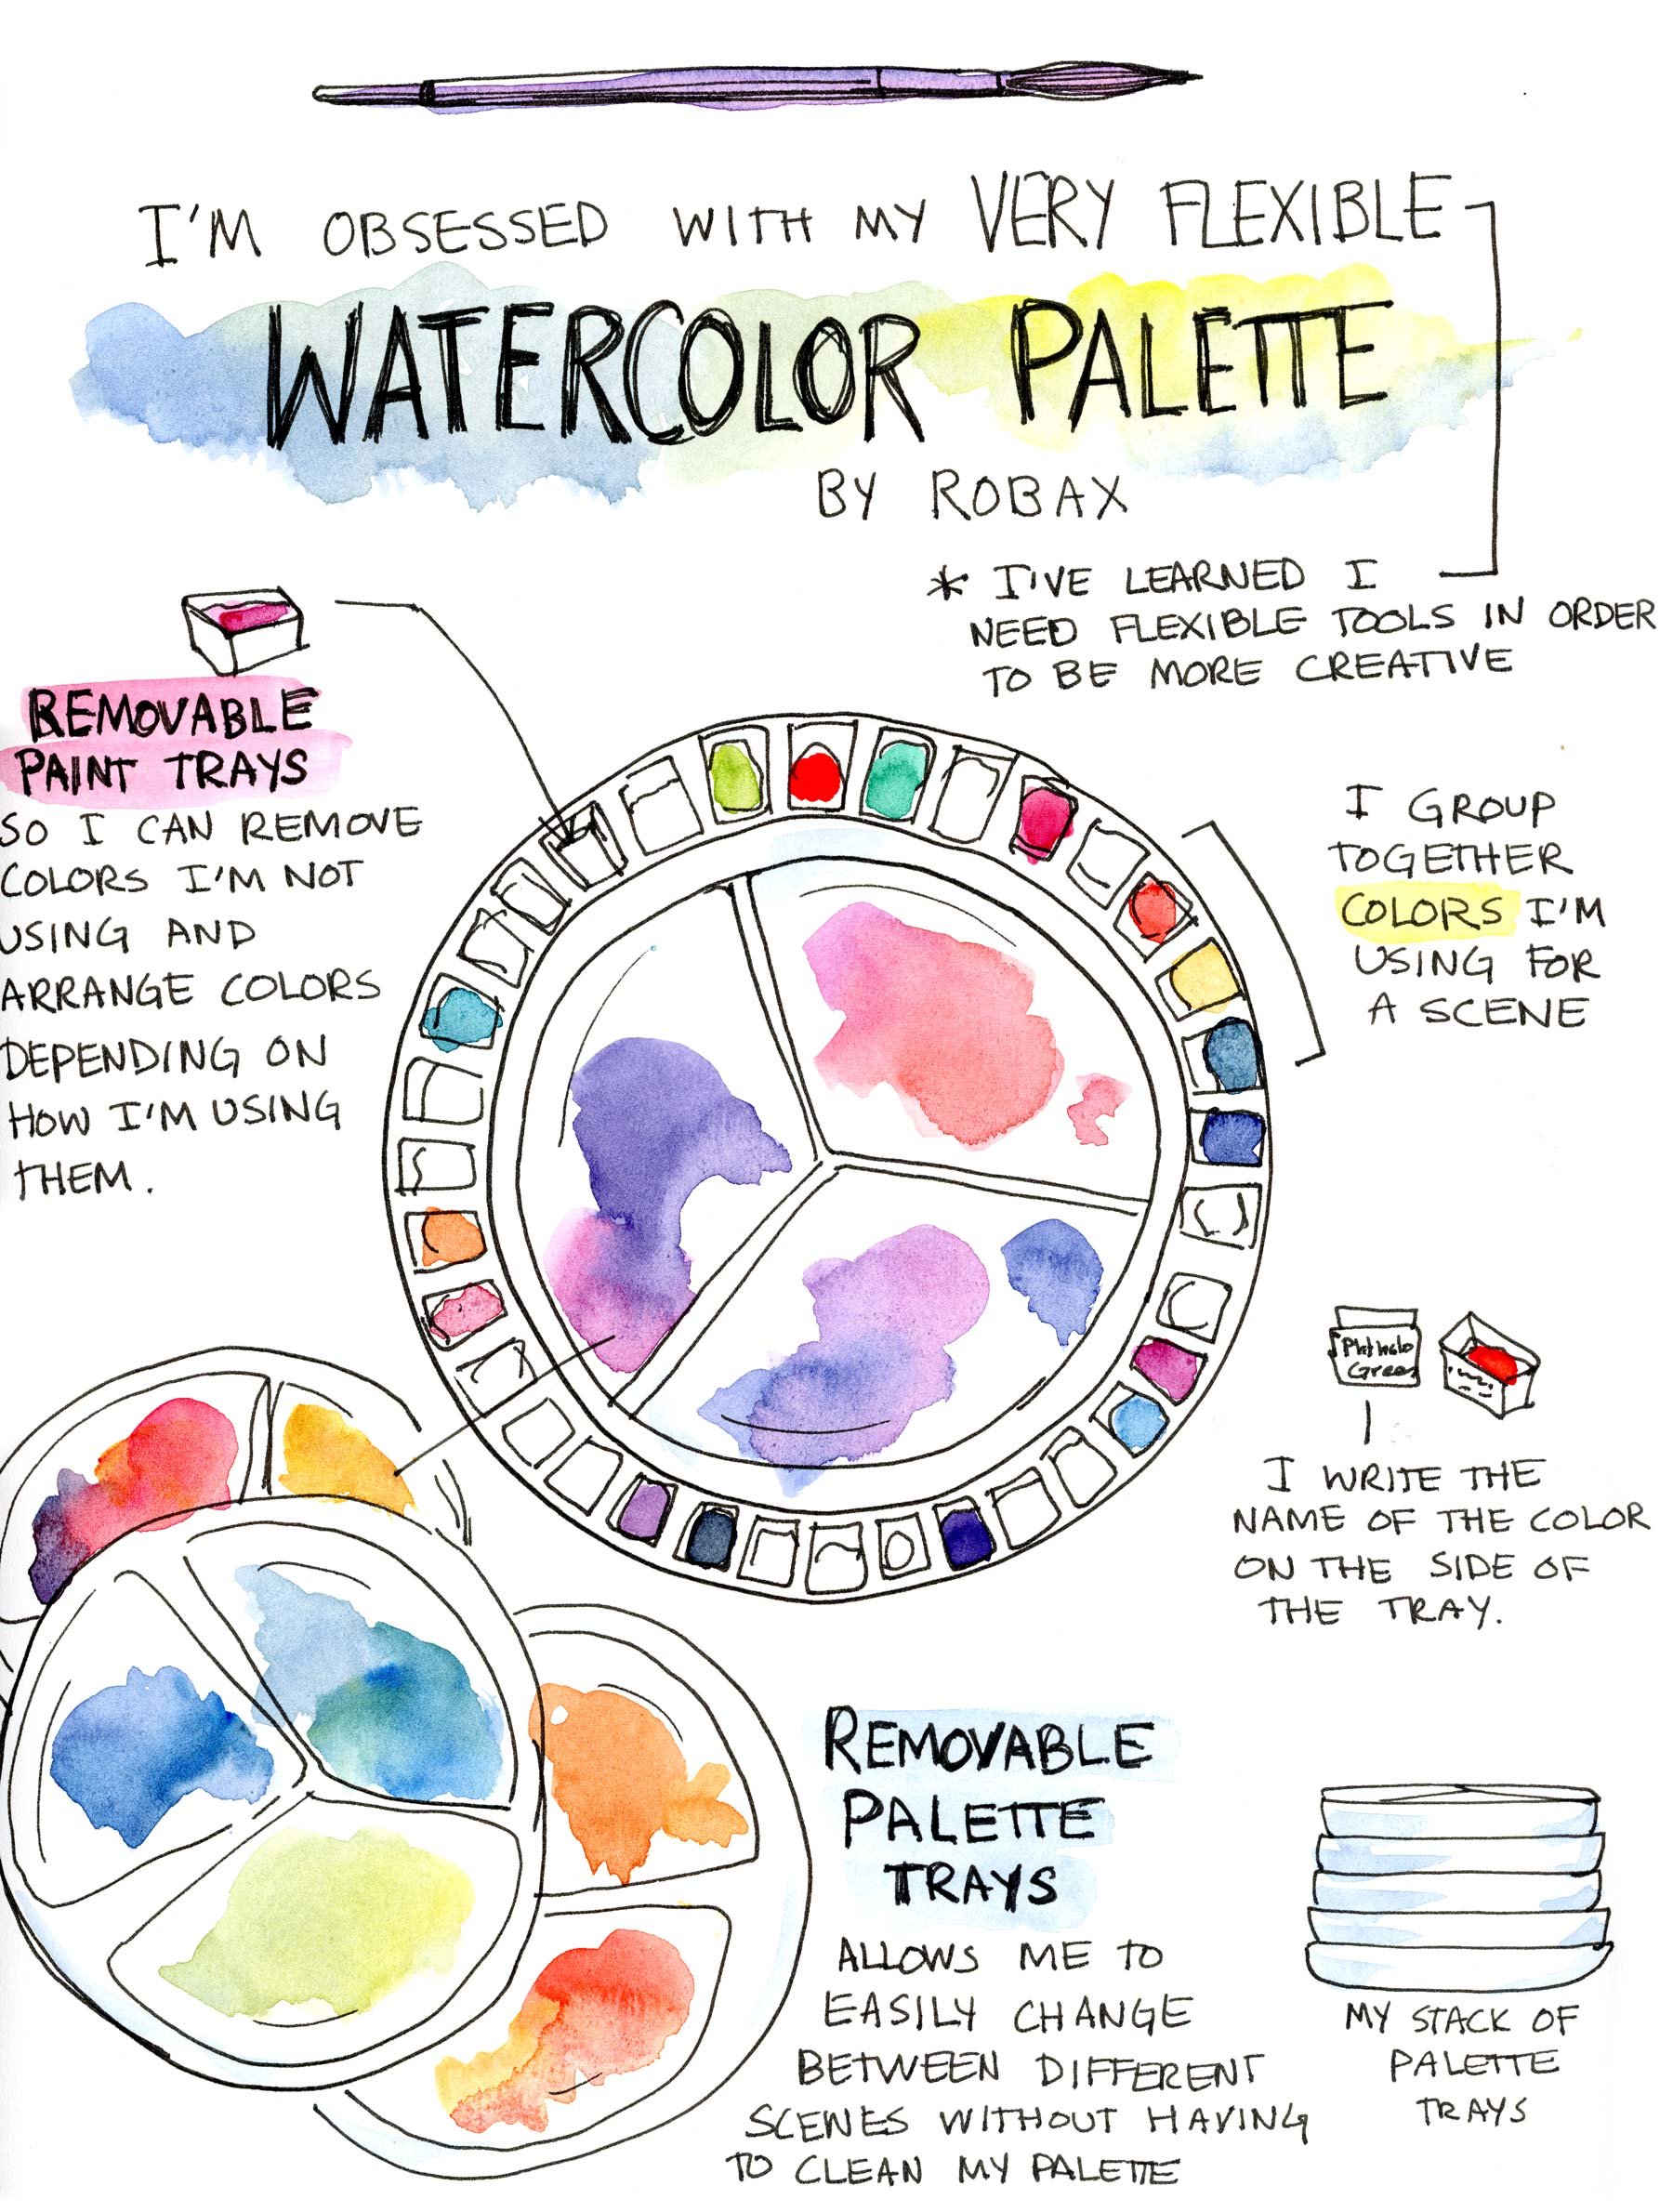 I'M OBSESSED WITH MY VERY FLEXIBLE
WATERCOLOR PALETTE
BY ROBAX
* I'VE LEARNED I
NEED FLEXIBLE TOOLS IN ORDER
TO BE MORE CREATIVE
REMOVABLE
PAINT TRAYS
SO I CAN REMOVE
COLORS I'M NOT
USING AND
ARRANGE COLORS
DEPENDING ON
HOW I'M USING
THEM.
I GROUP
TOGETHER
COLORS I'M
USING FOR
A SCENE
Phthalo
Green
I WRITE THE
NAME OF THE COLOR
ON THE SIDE OF
THE TRAY.
REMOVABLE
PALETTE
TRAYS
ALLOWS ME TO
EASILY CHANGE
BETWEEN DIFFERENT
SCENES WITHOUT HAVING
TO CLEAN MY PALETTE
MY STACK OF
PALETTE
TRAYS